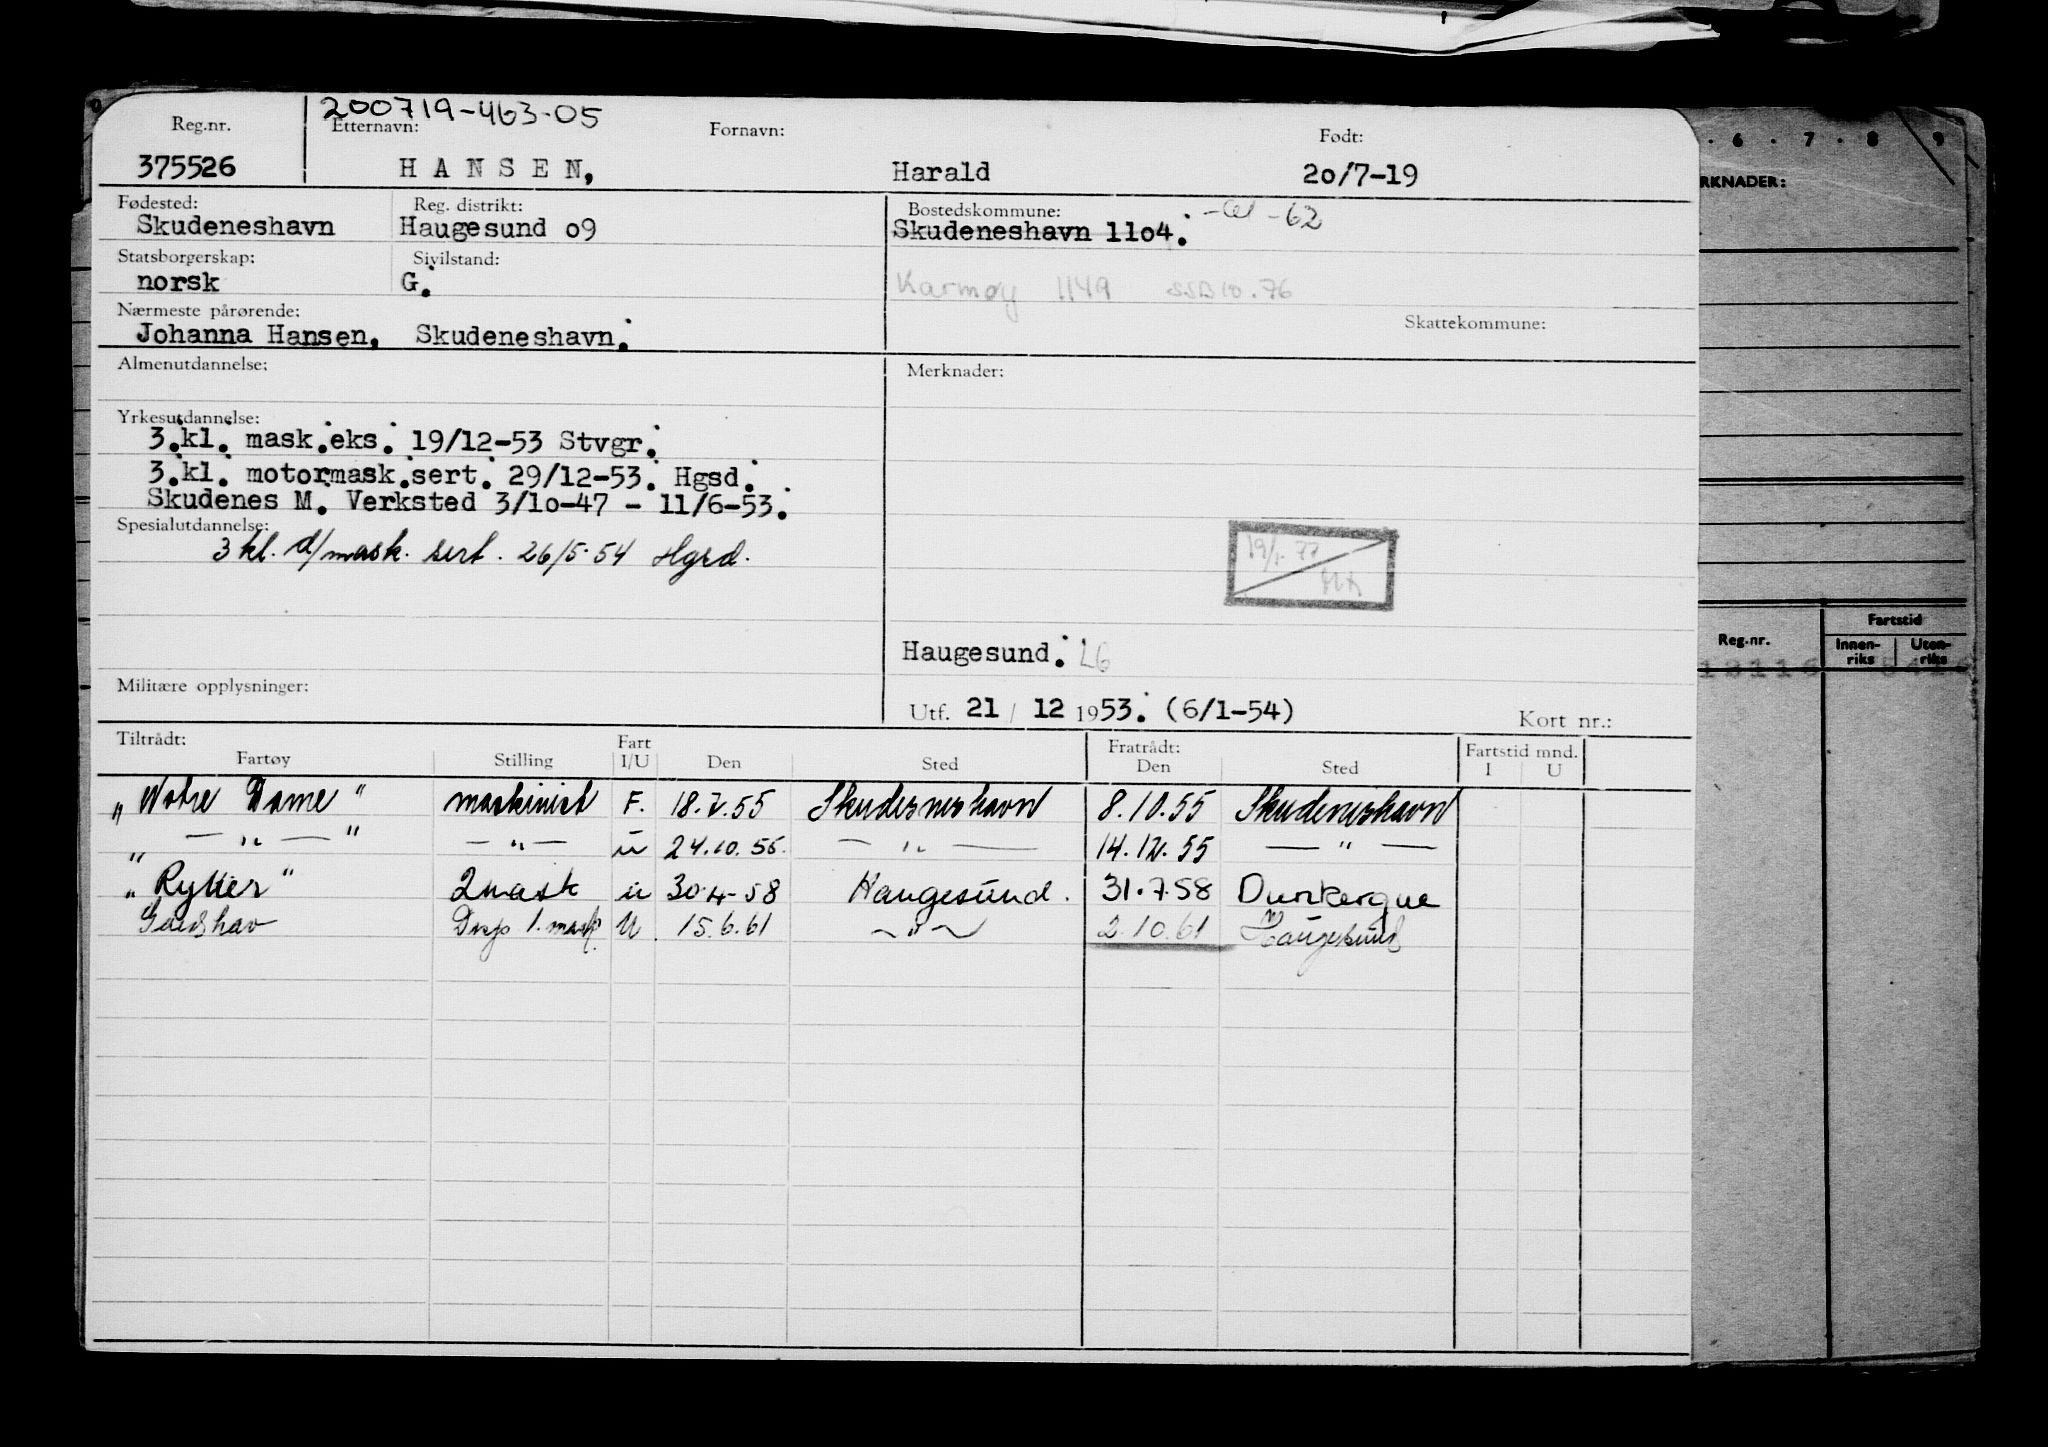 200719-463-05
Reg.nr. Etternavn: Fornavn: Født:
375526 HANSEN, Harald 20/7-19
Fødested: Reg. distrikt: Bostedskommune:
Skudeneshavn Haugesund 09 Skudeneshavn 1104. -62
Statsborgerskap: Sivilstand:
norsk G. Karmøy 1149 SSB 10.76
Nærmeste pårørende: Skattekommune:
Johanna Hansen, Skudeneshavn.
Almenutdannelse: Merknader:
Yrkesutdannelse:
3.kl. mask.eks. 19/12-53 Stvgr.
3.kl. motormask.sert. 29/12-53. Hgsd.
Skudenes M. Verksted 3/10-47 - 11/6-53.
Spesialutdannelse:
3 kl. d/mask. sert. 26/5-54 Hgsd.
19/1.77
Haugesund. LG
Militære opplysninger:
Utf. 21 / 12 1953. (6/1-54) Kort nr.:
Tiltrådt: Fart Fratrådt: Fartstid mnd.
Fartøy Stilling I/U Den Sted Den Sted I U
"Notre Dame" maskinist F. 18.7.55 Skudeneshavn 8.10.55 Skudeneshavn
" — " — " — " — u 24.10.55. — " — 14.12.55 — " —
"Rytter" 2mask u 30.4-58 Haugesund. 31.7.58 Dunkerque
Disp 1. mask. U. 15.6.61 ~ " ~ 2.10.61 Haugesund
6 . 7 . 8 . 9
RKNADER:
Reg.nr. Fartstid
Innen-riks Uten-riks